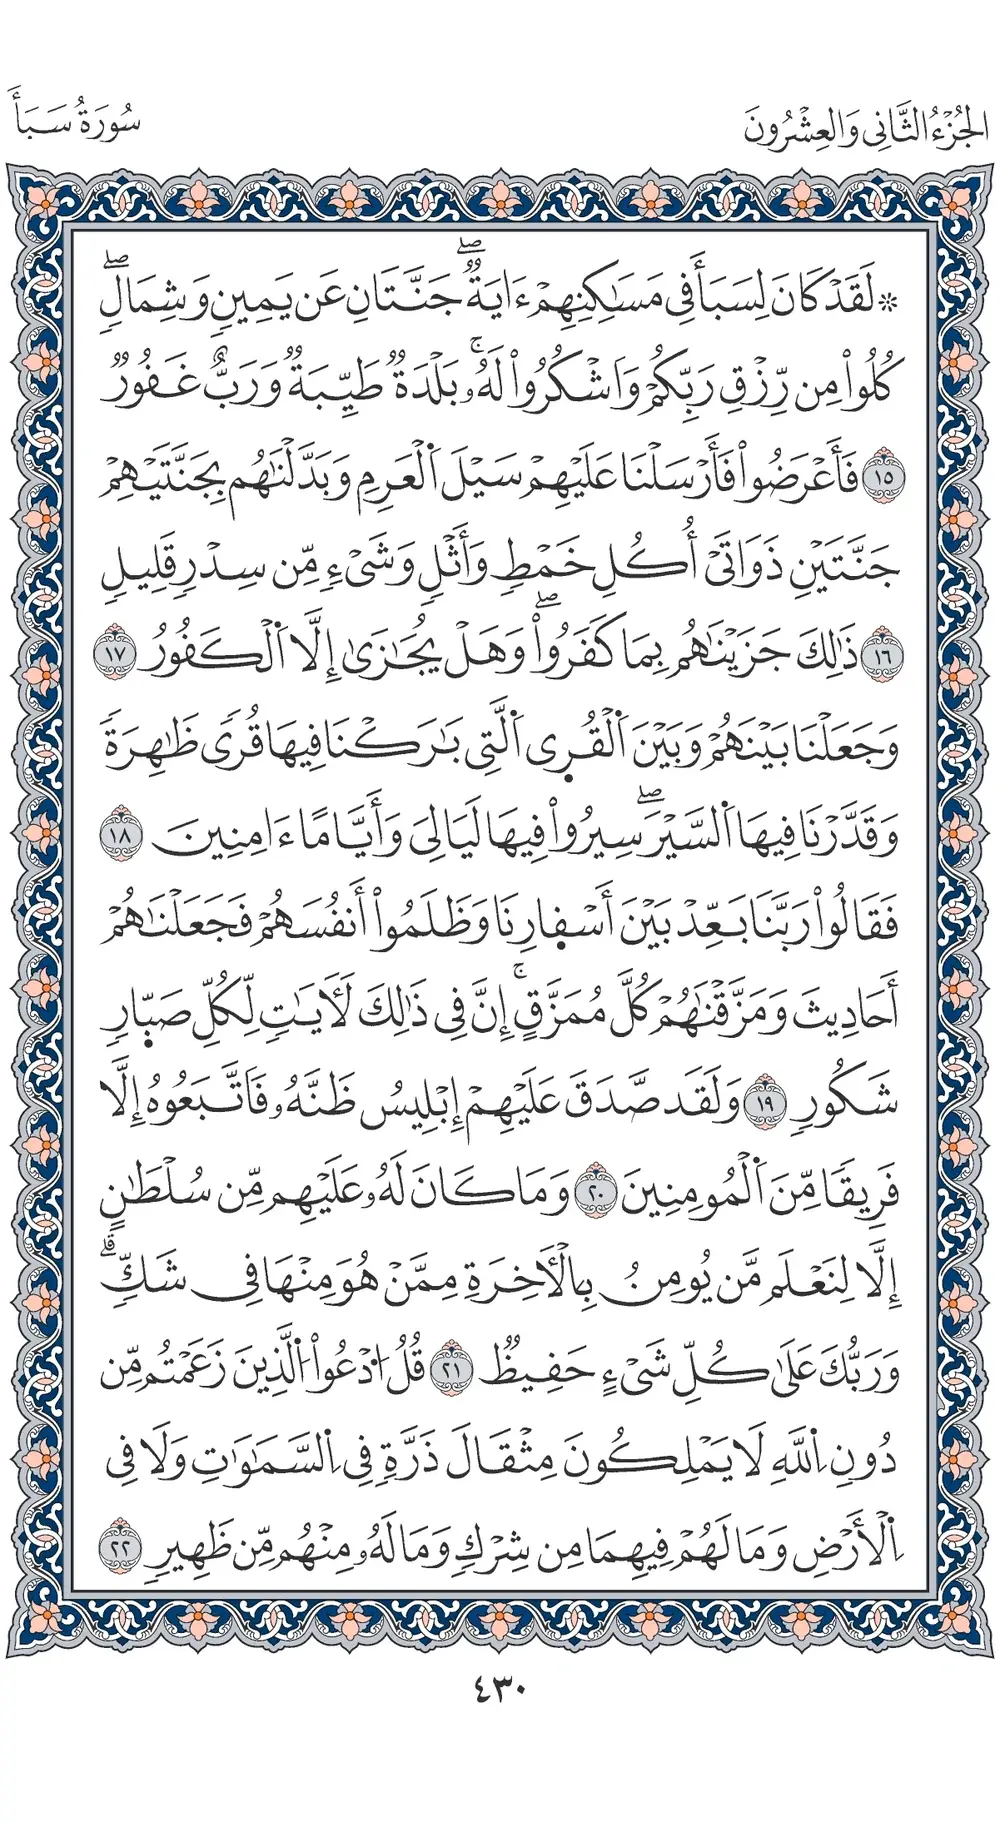 الجُزْءُ الثَّانِي وَالعِشْرُونَ
سُورَةُ سَبَأ
۞ لَقَدْ كَانَ لِسَبَأَ فِي مَسَٰكِنِهِمْۥ ءَايَةٞۖ جَنَّتَانِ عَن يَمِينٖ وَشِمَالٖۖ
كُلُواْ مِن رِّزْقِ رَبِّكُمْ وَاَشْكُرُواْ لَهُۥۚ بَلْدَةٞ طَيِّبَةٞ وَرَبٌّ غَفُورٞ
١٥ فَأَعْرَضُواْ فَأَرْسَلْنَا عَلَيْهِمْ سَيْلَ اَلْعَرِمِ وَبَدَّلْنَٰهُم بِجَنَّتَيْهِمْ
جَنَّتَيْنِ ذَوَاتَيْ أُكُلِ خَمْطٖ وَأَثْلٖ وَشَيْءٖ مِّن سِدْرٖ قَلِيلٖ
١٦ ذَٰلِكَ جَزَيْنَٰهُم بِمَا كَفَرُواْۖ وَهَلْ يُجَٰزَىٰ إِلَّا اَلْكَفُورُ ١٧
وَجَعَلْنَا بَيْنَهُمْ وَبَيْنَ اَلْقُرَى اَلَّتِي بَٰرَكْنَا فِيهَا قُرٗى ظَٰهِرَةٗ
وَقَدَّرْنَا فِيهَا اَلسَّيْرَۖ سِيرُواْ فِيهَا لَيَالِيَ وَأَيَّامًا ءَامِنِينَ ١٨
فَقَالُواْ رَبَّنَا بَعِّدْ بَيْنَ أَسْفِارِنَا وَظَلَمُواْ أَنفُسَهُمْ فَجَعَلْنَٰهُمْ
أَحَادِيثَ وَمَزَّقْنَٰهُمْ كُلَّ مُمَزَّقٍۚ إِنَّ فِي ذَٰلِكَ لَأٓيَٰتٖ لِّكُلِّ صَبِّارٖ
شَكُورٖ ١٩ وَلَقَد صَّدَقَ عَلَيْهِمْ إِبْلِيسُ ظَنَّهُۥ فَاتَّبَعُوهُ إِلَّا
فَرِيقٗا مِّنَ اَلْمُومِنِينَ ٢٠ وَمَا كَانَ لَهُۥ عَلَيْهِم مِّن سُلْطَٰنٍ
إِلَّا لِنَعْلَم مَّن يُومِنُ بِالْأَخِرَةِ مِمَّنْ هُوَ مِنْهَا فِي شَكّٖۗ
وَرَبُّكَ عَلَىٰ كُلِّ شَيْءٍ حَفِيظٞ ٢١ قُلُ اِدْعُواْ اُلَّذِينَ زَعَمْتُم مِّن
دُونِ اِللَّهِ لَا يَمْلِكُونَ مِثْقَالَ ذَرَّةٖ فِي اِلسَّمَٰوَٰتِ وَلَا فِي
اِلْأَرْضِ وَمَا لَهُمْ فِيهِمَا مِن شِرْكٖ وَمَا لَهُۥ مِنْهُم مِّن ظَهِيرٖ ٢٢
٤٣٠